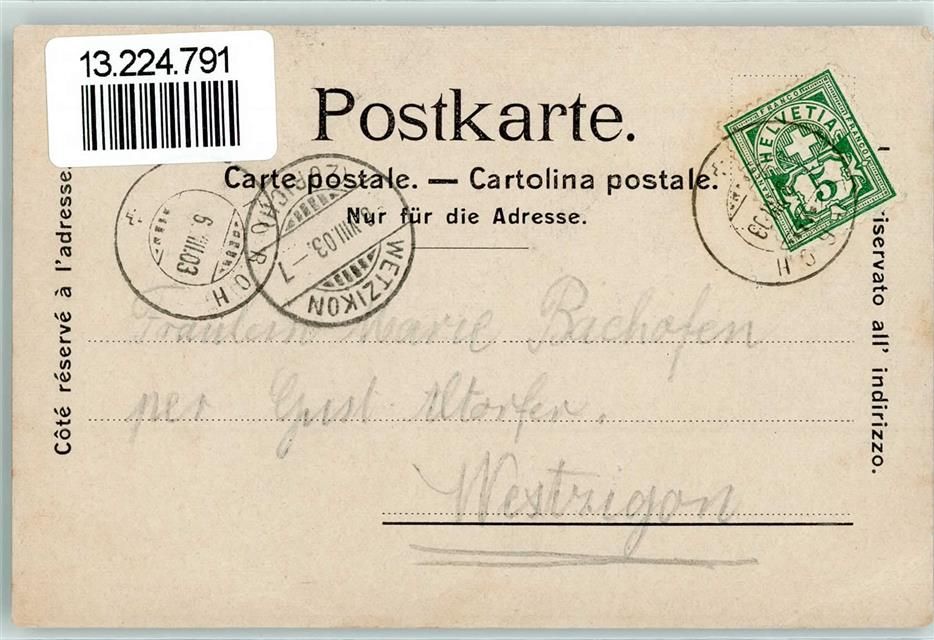 13.224.791
Postkarte.
Carte postale. — Cartolina postale.
Nur für die Adresse.
Côté réservé à l'adresse.
riservato all' indirizzo.
FRANCO
HELVETIA
FRANCO
6.VIII.03
WETZIKON
VIII.03.–7
Fräulein Marie Bachofen
per
Westzigon